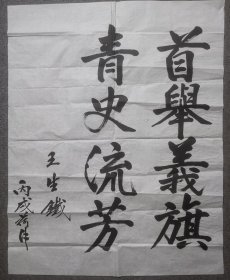 首舉義旗
青史流芳
王生鐵
丙戌荷月